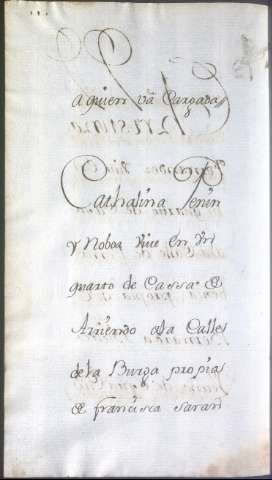 a quien vā Cargada
Cathalina Penin
y Noboa vive en un
quarto de Cassa &
Arriendo ala Calle
de la Burga propia
& francisca saran